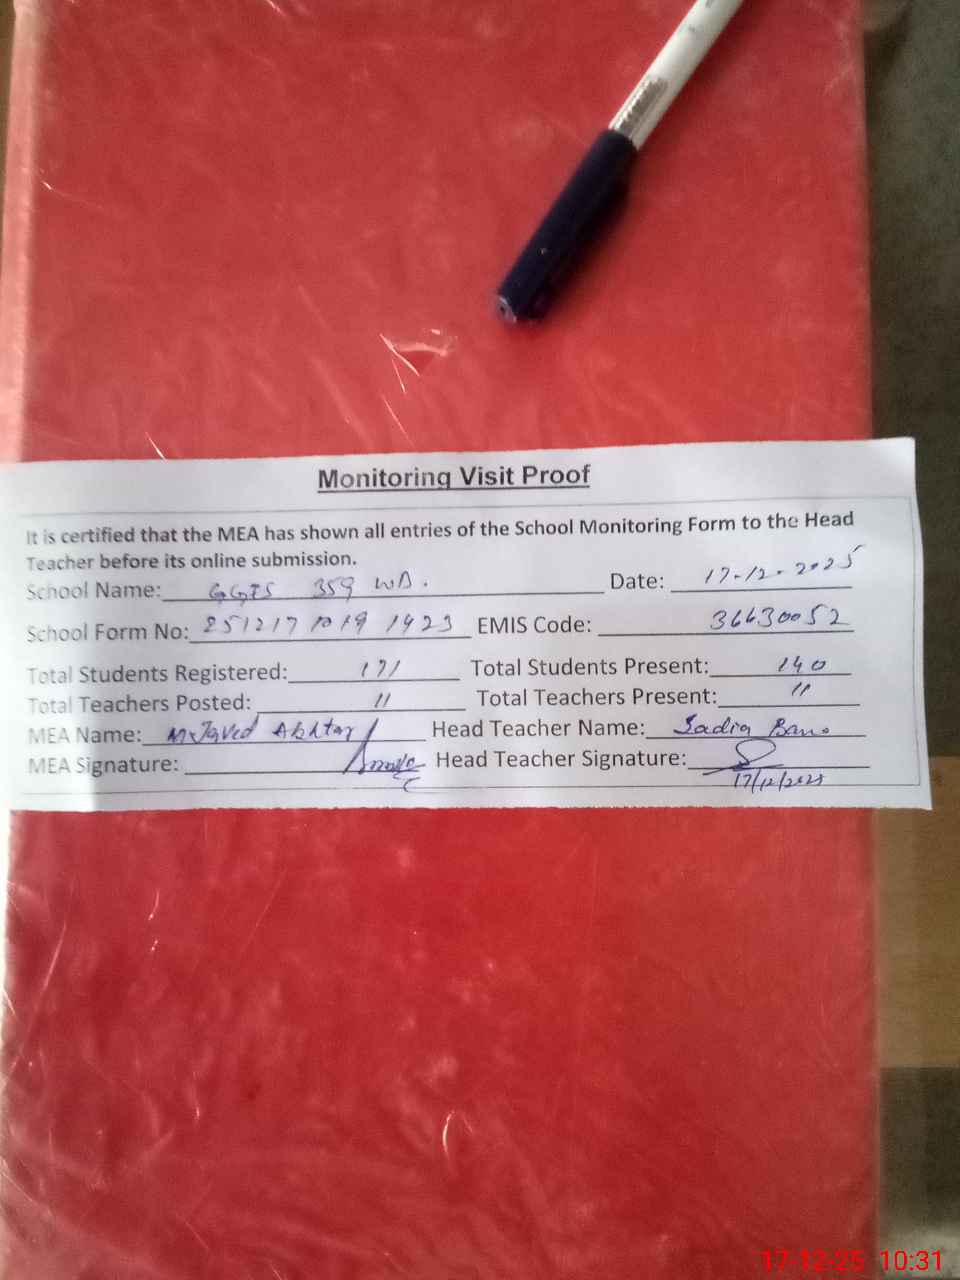 Monitoring Visit Proof
It is certified that the MEA has shown all entries of the School Monitoring Form to the Head
Teacher before its online submission.
School Name: GGES 359 WB. Date: 17-12-2025
School Form No: 251217 1019 1923 EMIS Code: 36630052
Total Students Registered: 171 Total Students Present: 140
Total Teachers Posted: 11 Total Teachers Present: 11
MEA Name: M. Javed Akhtar Head Teacher Name: Sadia Bano
MEA Signature: Head Teacher Signature:
17/12/2025
17-12-25 10:31